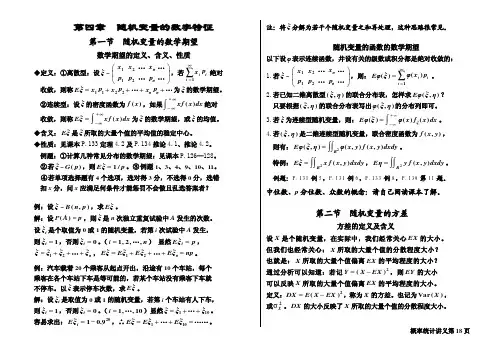 第四章 随机变量的数字特征
第一节 随机变量的数学期望
数学期望的定义、含义、性质
◆定义：①离散型：设ξ~( x₁ x₂ … xₙ … ; p₁ p₂ … pₙ … )，若∑xᵢpᵢ绝对
收敛，则称Eξ=x₁p₁+x₂p₂+…+xₙpₙ+…为ξ的数学期望。
②连续型：设ξ的密度函数为f(x)，如果∫xf(x)dx绝对
收敛，则称Eξ=∫xf(x)dx为ξ的数学期望，或ξ的均值。
◆含义：Eξ是ξ所取的大量个值的平均值的稳定中心。
◆性质：见课本P.133定理4.2及P.134推论4.1、推论4.2。
例题：①计算几种常见分布的数学期望：见课本P.126—128。
②若ξ~G(p)，则Eξ=1/p。③例题4、3、4、9、10、11。
④若单项选择题有4个选项，选对得3分，不选得0分，选错
扣x分，问x应满足何条件才能惩罚不会做且乱选答案者？
例：设ξ~B(n,p)，求Eξ。
解：设P(A)=p，则ξ是n次独立重复试验中A发生的次数。
设ξᵢ是个取值为0或1的随机变量，若第i次试验中A发生，
则ξᵢ=1；否则ξᵢ=0。(i=1,2,…,n) 显然Eξᵢ=p；
ξ=ξ₁+ξ₂+…+ξₙ，Eξ=Eξ₁+Eξ₂+…+Eξₙ=np。
例：汽车载着20个乘客从起点开出，沿途有10个车站，每个
乘客在各个车站下车是等可能的，若某个车站没有乘客下车就
不停车，以ξ表示停车次数，求Eξ。
解：设ξᵢ是取值为0或1的随机变量，若第i个车站有人下车，
则ξᵢ=1；否则ξᵢ=0。(i=1,…,10) 显然ξ=ξ₁+…+ξ₁₀。
容易求出：Eξᵢ=1−0.9²⁰，∴Eξ=Eξ₁+…+Eξ₁₀=……。
注：将ξ分解为若干个随机变量之和再处理，这种思路很常见。
随机变量的函数的数学期望
以下设φ表示连续函数，并设有关的级数或积分都是绝对收敛的：
1.若ξ~( x₁ x₂ … xₙ … ; p₁ p₂ … pₙ … )，则：Eφ(ξ)=∑φ(xᵢ)pᵢ。
2.若已知二维离散型(ξ,η)的联合分布表，怎样求Eφ(ξ,η)？
只要根据(ξ,η)的联合分布表写出φ(ξ,η)的分布列即可。
3.若ξ为连续型随机变量，则：Eφ(ξ)=∫φ(x)f(x)dx。
4.若(ξ,η)是二维连续型随机变量，联合密度函数为f(x,y)，
则有：Eφ(ξ,η)=∬φ(x,y)f(x,y)dxdy。
特例：Eξ=∬xf(x,y)dxdy，Eη=∬yf(x,y)dxdy。
中位数、p分位数、众数的概念：请自己阅读课本了解。
第二节 随机变量的方差
方差的定义及含义
设X是个随机变量，在实际中，我们经常关心EX的大小。
但我们也经常关心：X所取的大量个值的分散程度大小？
也就是：X所取的大量个值偏离EX的平均程度的大小？
通过分析可以知道：若记Y=(X−EX)²，则EY的大小
可以反映X所取的大量个值偏离EX的平均程度的大小。
定义：DX=E(X−EX)²，称为X的方差。也记为Var(X)，
DX的大小反映了X所取的大量个值的分散程度大小。
概率统计讲义第18页